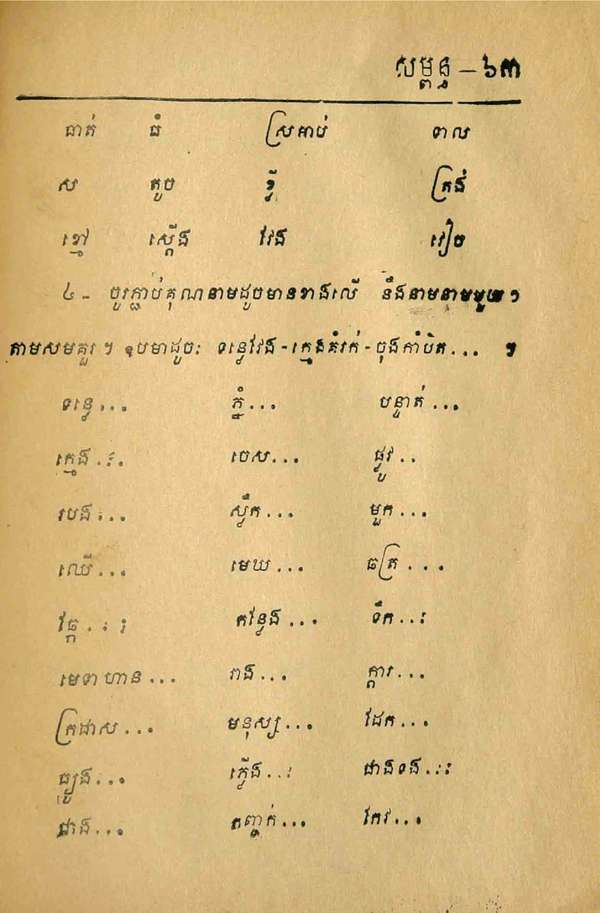 សម្ពន្ធ – ៦៣
ធាត់ ធំ ស្រគាប់ ទាល
ស តូច ខ្លី ត្រង់
ខ្មៅ ស្ដើង វែង វៀច
៤ - ចូរភ្ជាប់គុណនាមដូចមានខាងលើ នឹងនាមនាមមួយៗ
តាមសមគួរ ។ ឧបមាដូចៈ ទន្លេវែង - ក្មេងគំរក់ - ចុងកាំបិត... ។
ទន្លេ... ភ្នំ... បន្ទាត់...
ក្មេង... ចេស... ផ្លូវ..
របង... ស្លឹក... មួក...
ឈើ... មេឃ... ឆត្រ...
ឆ្កែ... កន្លែង... ទឹក...
មេទាហាន... រាង... ក្ដារ...
ក្រដាស... មនុស្ស... ដែក...
ធ្យូង... ភ្លើង... ជាងទង...
ជាង... កញ្ចក់... កែវ...